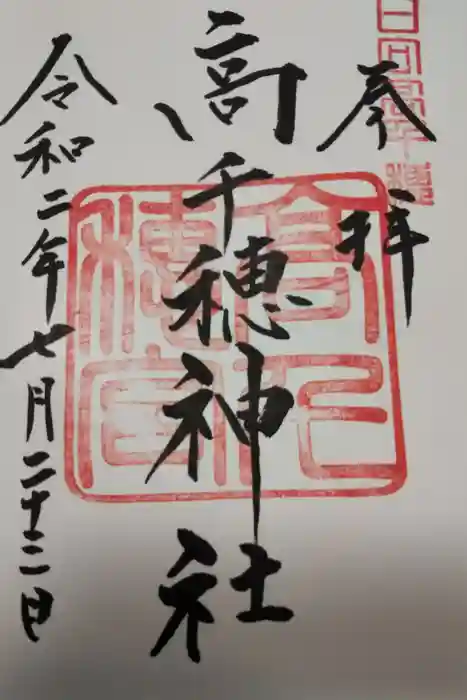 日向高千穂
奉拝
高千穂神社
令和二年七月二十二日